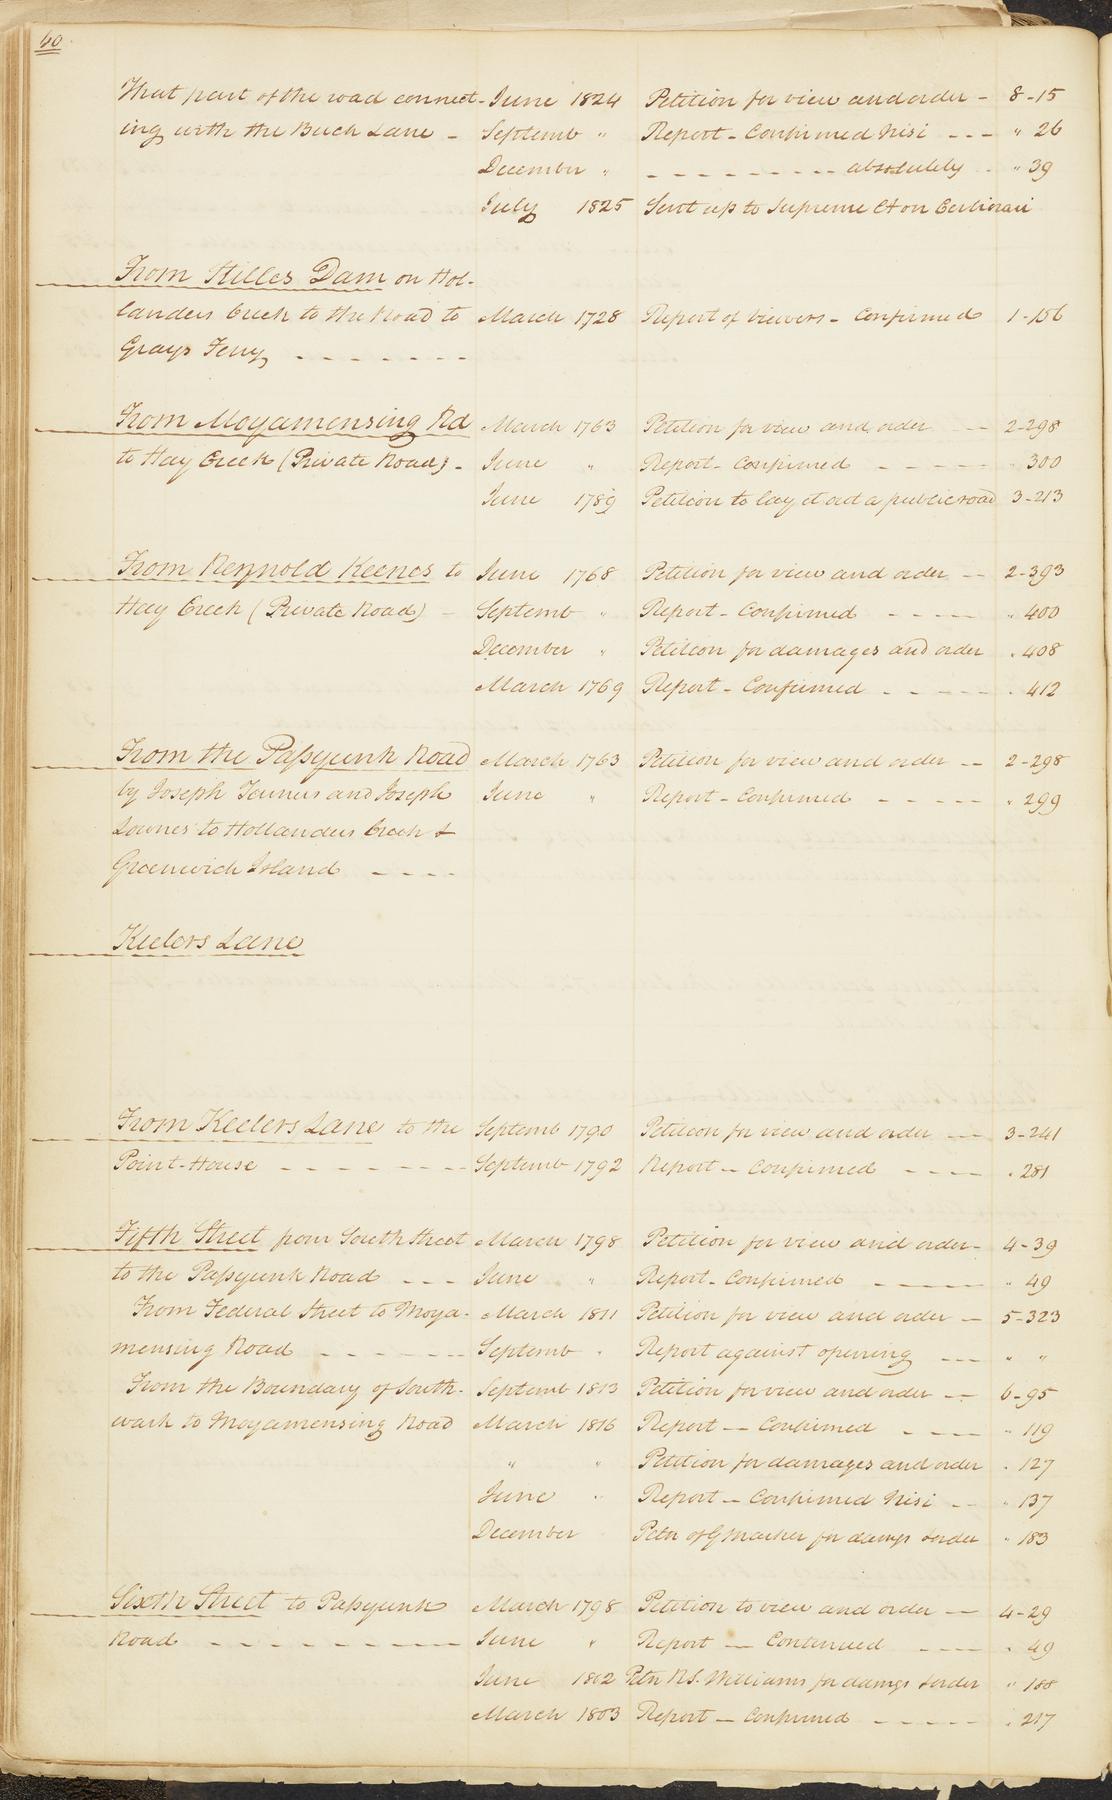 60
That part of the road connect- June 1824 Petition for view and order - 8-15
ing with the Buck Lane - Septemb " Report - Confirmed Nisi - - - " 26
December " - - - - - - - - - absolutely - " 39
July 1825 Sent up to Supreme Ct on Certiorari
From Hilles Dam on Hol-
landers Creek to the Road to March 1728 Report of Viewers - Confirmed 1-156
Grays Ferry - - - - - - -
From Moyamensing Rd March 1763 Petition for view and order - - 2-298
to Hay Creek (Private Road) - June " Report - Confirmed - - - - - " 300
June 1789 Petition to lay it out a public road 3-213
From Reynold Keenes to June 1768 Petition for view and order - - 2-393
Hay Creek (Private Road) - Septemb " Report - Confirmed - - - - " 400
December " Petition for damages and order " 408
March 1769 Report - Confirmed - - - - - " 412
From the Paſsyunk Road March 1763 Petition for view and order - - 2-298
by Joseph Turners and Joseph June " Report - Confirmed - - - - - " 299
Lownes to Hollanders Creek &
Greenwich Island - - - -
Keelers Lane
From Keelers Lane to the Septemb 1790 Petition for view and order - - 3-241
Point-House - - - - - - - Septemb 1792 Report - Confirmed - - - - " 281
Fifth Street from South Street March 1798 Petition for view and order - 4-39
to the Paſsyunk Road - - - June " Report - Confirmed - - - - - " 49
From Federal Street to Moya- March 1811 Petition for view and order - 5-323
mensing Road - - - - - - Septemb " Report against opening - - - " "
From the Boundary of South- Septemb 1813 Petition for view and order - - 6-95
wark to Moyamensing Road March 1816 Report - - Confirmed - - - - " 119
" " Petition for damages and order " 127
June " Report - Confirmed Nisi - - " 137
December Petn of G for damgs & order " 183
Sixth Street to Paſsyunk March 1798 Petition to view and order - - 4-29
Road - - - - - - - - - June " Report - - Continued - - - " 49
June 1802 Petn N.S. Williams for damgs & order " 188
March 1803 Report - Confirmed - - - - - " 217